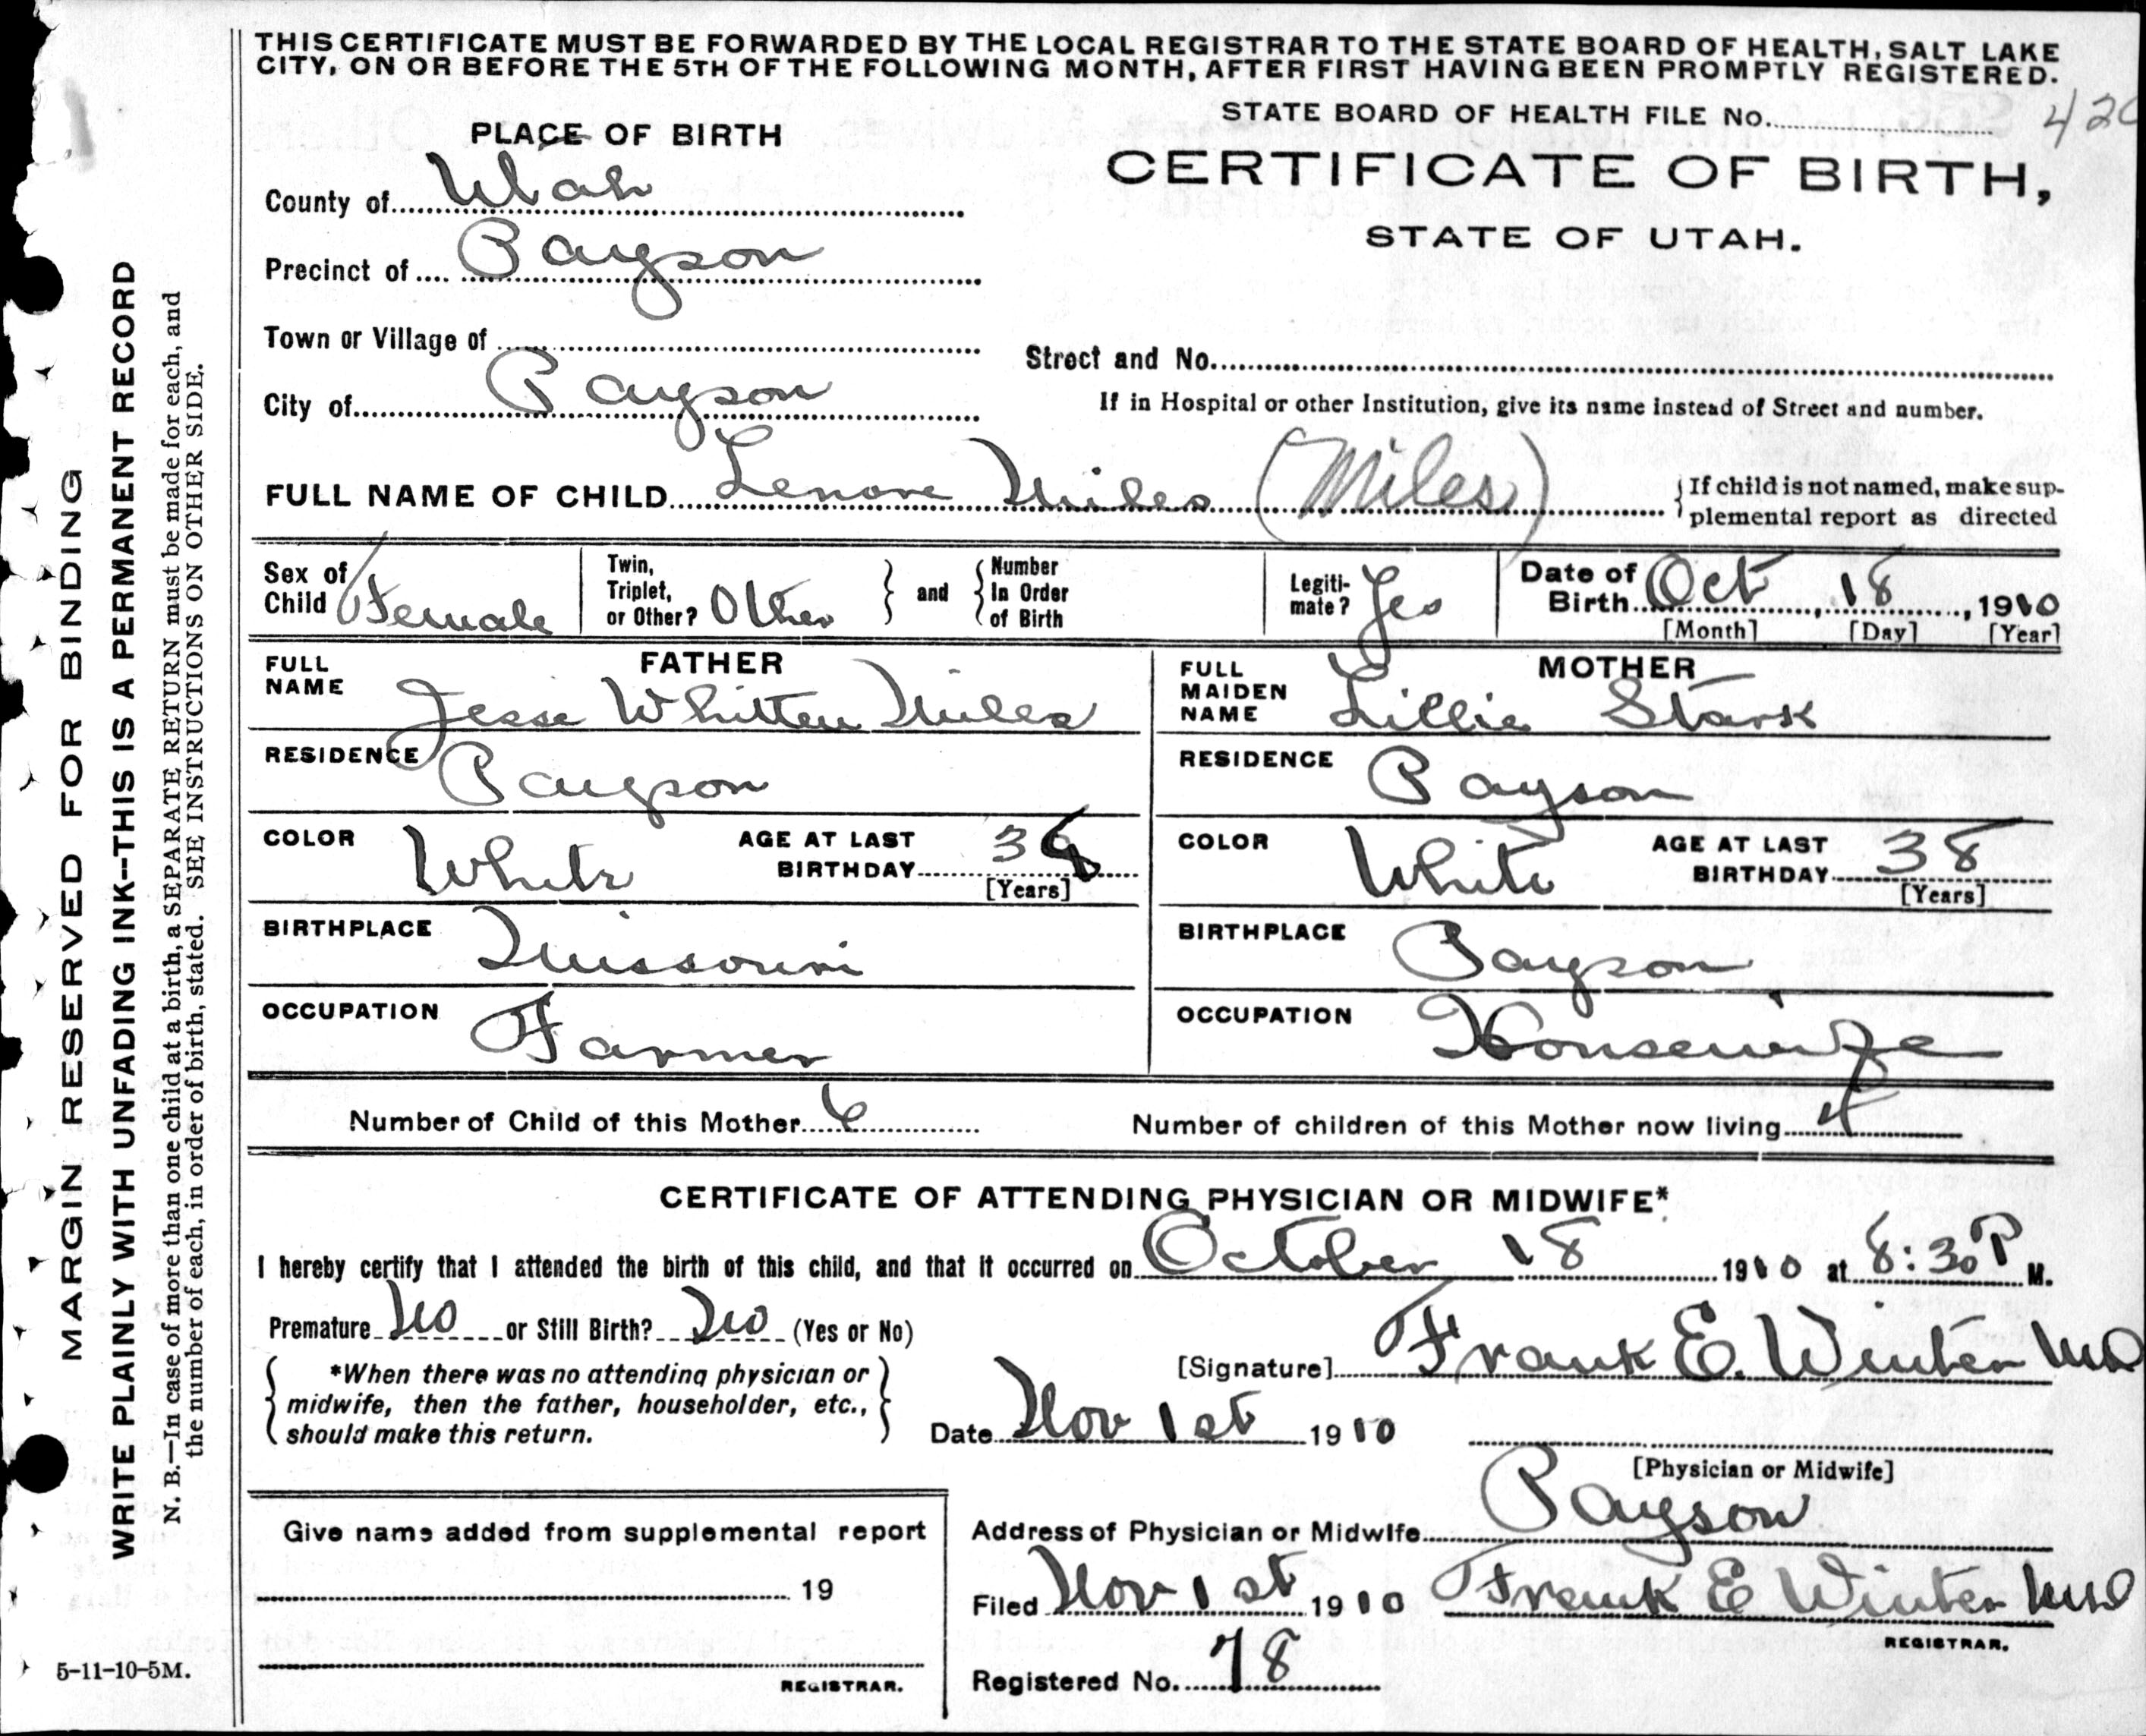 THIS CERTIFICATE MUST BE FORWARDED BY THE LOCAL REGISTRAR TO THE STATE BOARD OF HEALTH, SALT LAKE
CITY, ON OR BEFORE THE 5TH OF THE FOLLOWING MONTH, AFTER FIRST HAVING BEEN PROMPTLY REGISTERED.
STATE BOARD OF HEALTH FILE No. 420
PLACE OF BIRTH
CERTIFICATE OF BIRTH,
STATE OF UTAH.
County of Utah
Precinct of Payson
Town or Village of
Street and No.
City of Payson
If in Hospital or other Institution, give its name instead of Street and number.
FULL NAME OF CHILD Lenore Miles (Miles) { If child is not named, make sup-
plemental report as directed
Sex of Child Female
Twin, Triplet, or Other? Other } and { Number In Order of Birth
Legiti-mate? Yes
Date of Birth Oct, 18, 1910
[Month] [Day] [Year]
FATHER
FULL NAME Jesse Whitten Miles
RESIDENCE Payson
COLOR White AGE AT LAST BIRTHDAY 38
[Years]
BIRTHPLACE Missouri
OCCUPATION Farmer
MOTHER
FULL MAIDEN NAME Lillie Stark
RESIDENCE Payson
COLOR White AGE AT LAST BIRTHDAY 38
[Years]
BIRTHPLACE Payson
OCCUPATION Housewife
Number of Child of this Mother 6 Number of children of this Mother now living 4
CERTIFICATE OF ATTENDING PHYSICIAN OR MIDWIFE*
I hereby certify that I attended the birth of this child, and that it occurred on October 18 1910 at 8:30 P M.
Premature No or Still Birth? No (Yes or No)
{ *When there was no attending physician or
midwife, then the father, householder, etc.,
should make this return. }
[Signature] Frank E. Winter MD
Date Nov 1st 1910
[Physician or Midwife]
Give name added from supplemental report
19
REGISTRAR.
Address of Physician or Midwife Payson
Filed Nov 1st 1910 Frank E Winter MD
REGISTRAR.
Registered No. 78
MARGIN RESERVED FOR BINDING
WRITE PLAINLY WITH UNFADING INK--THIS IS A PERMANENT RECORD
N. B.—In case of more than one child at a birth, a SEPARATE RETURN must be made for each, and
the number of each, in order of birth, stated. SEE INSTRUCTIONS ON OTHER SIDE.
5-11-10-5M.